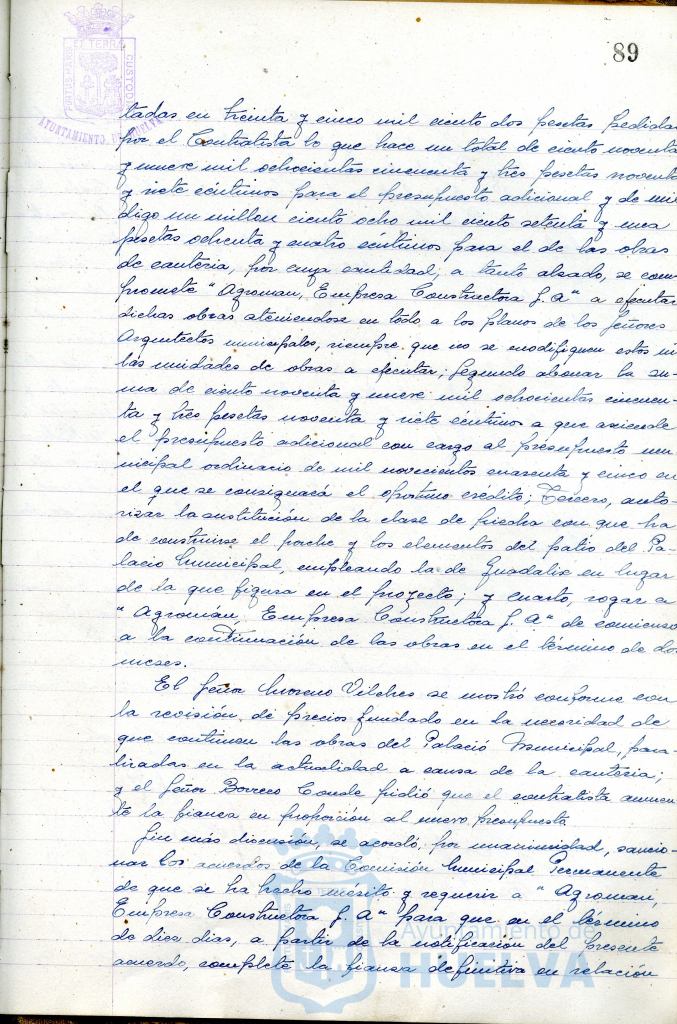 89
PORTUS MARIS
ET TERRÆ
CUSTODIA
AYUNTAMIENTO DE HUELVA
tadas en treinta y cinco mil ciento dos pesetas pedidas
por el Contratista lo que hace un total de ciento noventa
y nueve mil ochocientas cincuenta y tres pesetas noventa
y siete céntimos para el presupuesto adicional y de mil
digo un millon ciento ocho mil ciento setenta y una
pesetas ochenta y cuatro céntimos para el de las obras
de cantería, por cuya cantidad, a tanto alzado, se com-
promete "Agroman, Empresa Constructora S. A" a ejecutar
dichas obras ateniendose en todo a los planos de los Señores
Arquitectos municipales, siempre, que no se modifiquen estos ni
las unidades de obras a ejecutar; Segundo abonar la su-
ma de ciento noventa y nueve mil ochocientas cincuen-
ta y tres pesetas noventa y siete céntimos a que asciende
el presupuesto adicional con cargo al presupuesto mu-
nicipal ordinario de mil novecientos cuarenta y cinco en
el que se consignará el oportuno crédito; Tercero, auto-
rizar la sustitución de la clase de piedra con que ha
de construirse el porche y los elementos del patio del Pa-
lacio Municipal, empleando la de Guadalix en lugar
de la que figura en el proyecto; y cuarto, rogar a
"Agromán, Empresa Constructora S. A" de comienzo
a la continuación de las obras en el término de dos
meses.
El Señor Moreno Vilches se mostró conforme con
la revisión de precios fundado en la necesidad de
que continen las obras del Palacio Municipal, para-
lizadas en la actualidad a causa de la cantería;
y el Señor Borrero Conde pidió que el contratista aumen-
te la fianza en proporción al nuevo presupuesto
Sin más discusión, se acordó, por unanimidad, sancio-
nar los acuerdos de la Comisión Municipal Permanente
de que se ha hecho mérito y requerir a "Agroman,
Empresa Constructora S. A" para que en el término
de diez dias, a partir de la notificación del presente
acuerdo, complete la fianza definitiva en relación
Ayuntamiento de
HUELVA